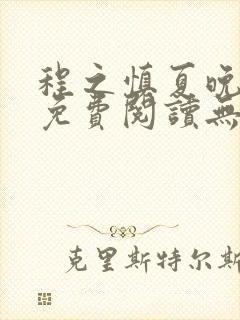 程之慎夏晚
免費閱讀無
克里斯特尔斯